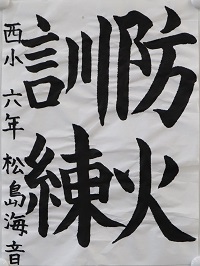 防火
訓練
西小 六年 松島海音